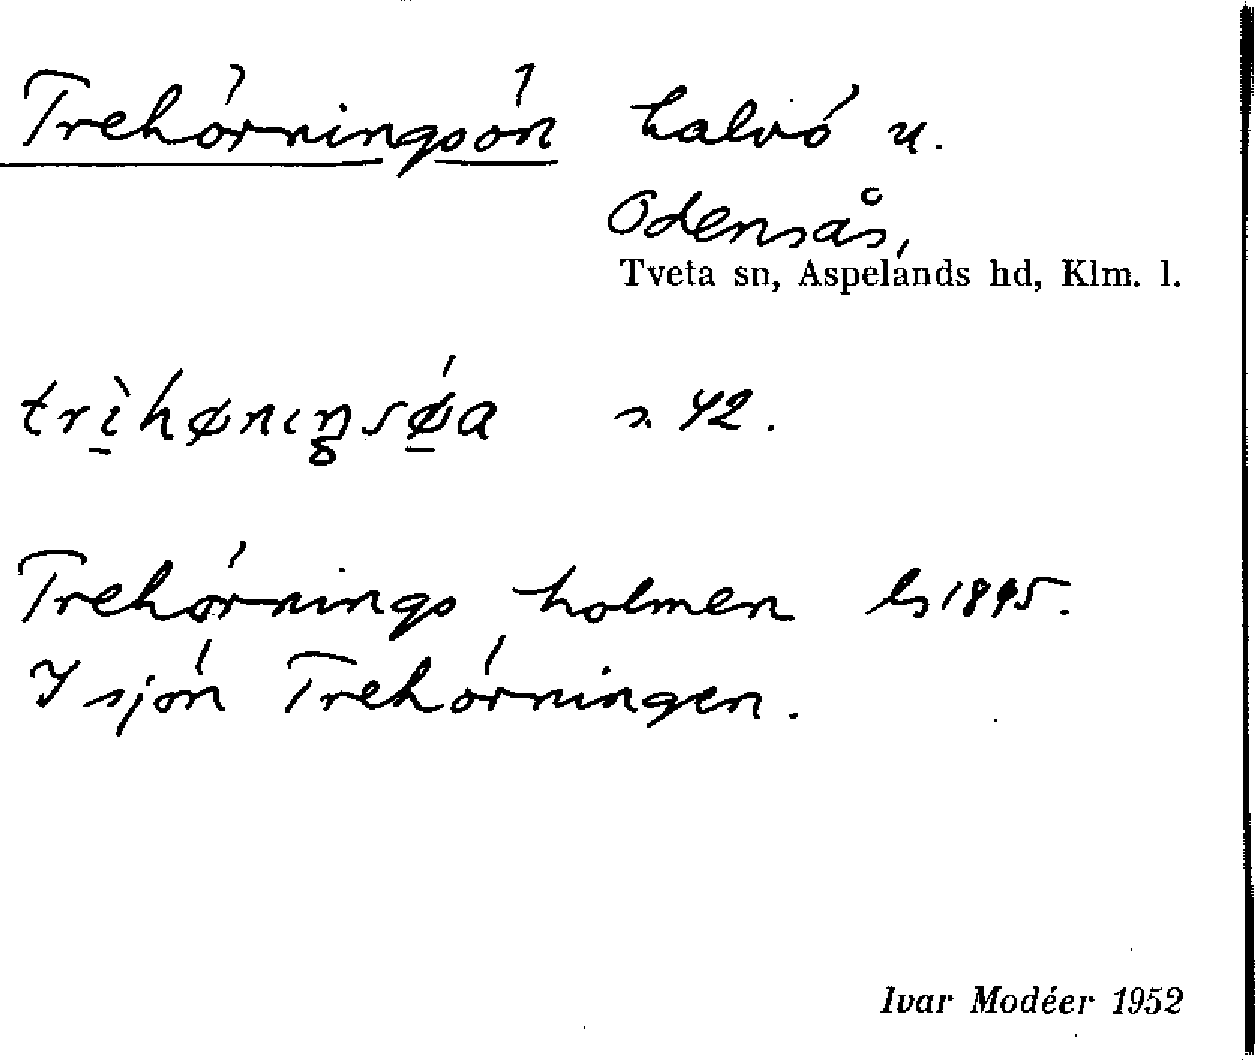 Trehörningsön halvö u.
Odensås,
Tveta sn, Aspelands hd, Klm. l.
trìhønıŋsǿa s. 42.
Trehörnings holmen ls 1895.
I sjön Trehörningen.
Ivar Modéer 1952